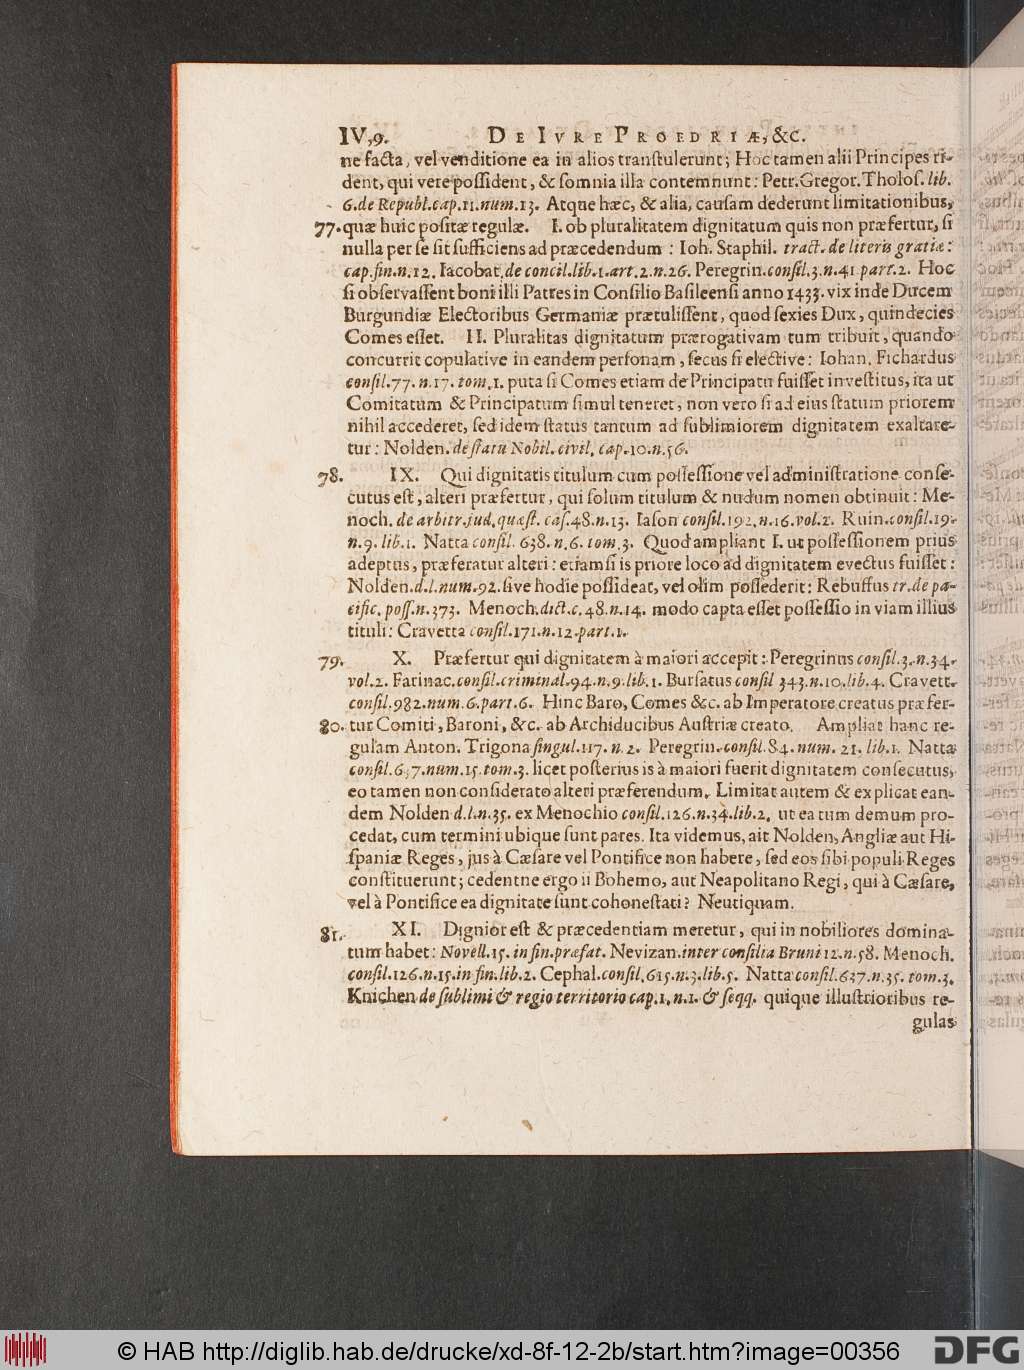 IV,9. DE IVRE PROEDRIÆ, &c.
ne facta, vel venditione ea in alios transtulerunt; Hoc tamen alii Principes ri-
dent, qui vere possident, & somnia illa contemnunt: Petr. Gregor. Tholos. lib.
6. de Republ. cap. 11. num. 13. Atque hæc, & alia, causam dederunt limitationibus,
77. quæ huic positæ regulæ. I. ob pluralitatem dignitatum quis non præfertur, si
nulla per se sit sufficiens ad præcedendum: Ioh. Staphil. tract. de literis gratiæ:
cap. fin. n. 12. Iacobat. de concil. lib. 1. art. 2. n. 26. Peregrin. consil. 3. n. 41 part. 2. Hoc
si observassent boni illi Patres in Consilio Basileensi anno 1433. vix inde Ducem
Burgundiæ Electoribus Germaniæ prætulissent, quod sexies Dux, quindecies
Comes esset. II. Pluralitas dignitatum prærogativam tum tribuit, quando
concurrit copulative in eandem personam, secus si elective: Iohan. Fichardus
consil. 77. n. 17. tom. 1. puta si Comes etiam de Principatu fuisset investitus, ita ut
Comitatum & Principatum simul teneret, non vero si ad eius statum priorem
nihil accederet, sed idem status tantum ad sublimiorem dignitatem exaltare-
tur: Nolden. de statu Nobil. civil. cap. 10. n. 56.
78. IX. Qui dignitatis titulum cum possessione vel administratione conse-
cutus est, alteri præfertur, qui solum titulum & nudum nomen obtinuit: Me-
noch. de arbitr. jud. quæst. cas. 48. n. 13. Iason consil. 192. n. 16. vol. 2. Ruin. consil. 19.
n. 9. lib. 1. Natta consil. 638. n. 6. tom. 3. Quod ampliant I. ut possessionem prius
adeptus, præferatur alteri: etiamsi is priore loco ad dignitatem evectus fuisset:
Nolden. d. l. num. 92. sive hodie possideat, vel olim possederit: Rebuffus tr. de pa-
cific. poss. n. 373. Menoch. dict. c. 48. n. 14. modo capta esset possessio in viam illius
tituli: Cravetta consil. 171. n. 12. part. 1.
79. X. Præfertur qui dignitatem à maiori accepit: Peregrinus consil. 3. n. 34.
vol. 2. Farinac. consil. criminal. 94. n. 9. lib. 1. Bursatus consil 343. n. 10. lib. 4. Cravett.
consil. 982. num. 6. part. 6. Hinc Baro, Comes &c. ab Imperatore creatus præfer-
80. tur Comiti, Baroni, &c. ab Archiducibus Austriæ creato. Ampliat hanc re-
gulam Anton. Trigona singul. 117. n. 2. Peregrin. consil. 84. num. 21. lib. 1. Natta
consil. 637. num. 15. tom. 3. licet posterius is à maiori fuerit dignitatem consecutus,
eo tamen non considerato alteri præferendum. Limitat autem & explicat ean-
dem Nolden d. l. n. 35. ex Menochio consil. 126. n. 34. lib. 2. ut ea tum demum pro-
cedat, cum termini ubique sunt pares. Ita videmus, ait Nolden, Angliæ aut Hi-
spaniæ Reges, jus à Cæsare vel Pontifice non habere, sed eos sibi populi Reges
constituerunt; cedentne ergo ii Bohemo, aut Neapolitano Regi, qui à Cæsare,
vel à Pontifice ea dignitate sunt cohonestati? Neutiquam.
81. XI. Dignior est & præcedentiam meretur, qui in nobiliores domina-
tum habet: Novell. 15. in fin. præfat. Nevizan. inter consilia Bruni 12. n. 58. Menoch.
consil. 126. n. 15. in fin. lib. 2. Cephal. consil. 615. n. 3. lib. 5. Natta consil. 637. n. 35. tom. 3.
Knichen de sublimi & regio territorio cap. 1. n. 1. & seqq. quique illustrioribus re-
gulas
© HAB http://diglib.hab.de/drucke/xd-8f-12-2b/start.htm?image=00356
DFG